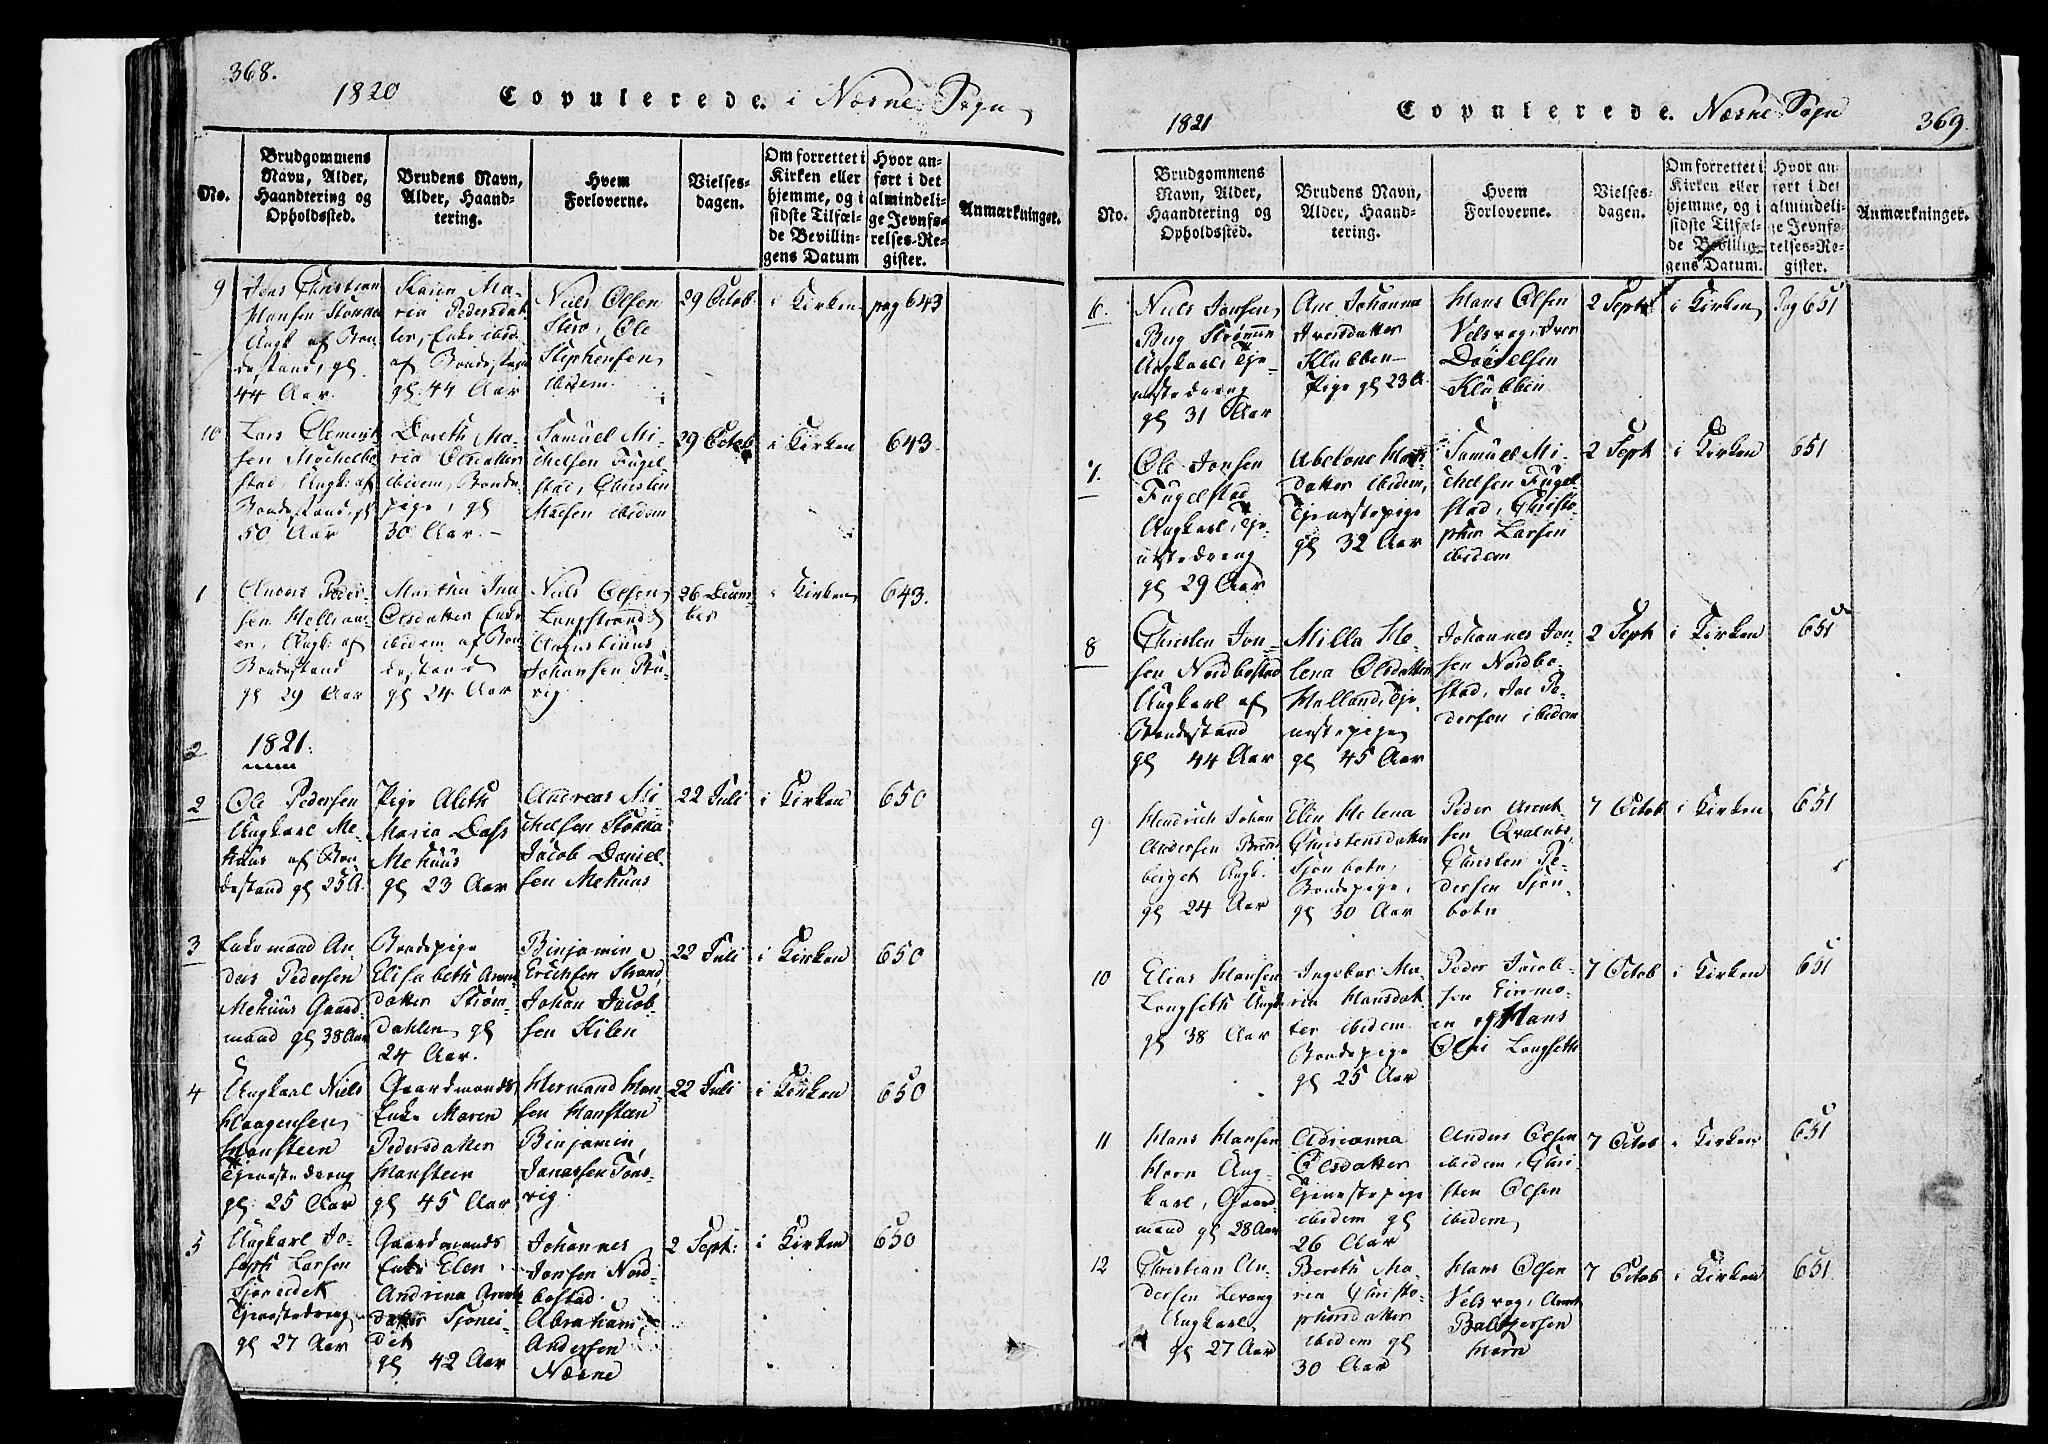 368.
1820 Copulerede. i Næsne Sogn
No.
Brudgommens
Navn, Alder,
Haandtering og
Opholdssted.
Brudens Navn,
Alder, Haand-
tering.
Hvem
Forloverne.
Vielses-
dagen.
Om forrettet i
Kirken eller
hjemme, og i
sidste Tilfæl-
de Bevillin-
gens Datum
Hvor an-
ført i det
almindeli-
ge Jevnfø-
relses-Re-
gister.
Anmærkninger.
9
Jens Christian
Hansen Stokka
Ungk. af Bon-
destand, gl.
44 Aar.
Karen Ma-
ria Pedersdat-
ter, Enke ibid.
af Bondestand
gl. 44 Aar
Niels Olsen
Ole
Stephensen
ibidem.
29 Octob
i Kirken
pag 643
10
Lars Clement-
sen
stad, Ungk: af
Bondestand, gl
50 Aar
Doreth Ma-
ria Olsdatter
ibidem, Bonde-
pige, gl
30 Aar. -
Samuel Mi-
chelsen Fugel-
stad, Christen
ibidem
29 Octob
i Kirken
643.
1
Anders Peder-
sen
Ungk: af
Bondestand
gl 29 Aar
Martha
Olsdatter Enke
ibidem af Bon-
destand
gl 24 Aar
Niels Olsen
Langstrand
Augustinus
Johansen
vig.
26 Decem-
ber
i Kirken
643.
2
1821.
2
Ole Pedersen
Ungkarl Me-
huus af Bon-
destand gl 25 A.
Pige Aleth
Maria Dass
Mehuus
gl 23 Aar
Andreas Mi-
chelsen Stokka
Jacob Daniel-
sen Mehuus
22 Juli
i Kirken
650
3
Enkemand An-
ders Pedersen
Mehuus Gaard-
mand gl 38 Aar
Bondepige
Elisabeth Arent
datter Strøm-
dahlen gl
24 Aar.
Binjamin
Erichsen Strand,
Johan Jacob-
sen Kilen
22 Juli
i Kirken
650
4
Ungkarl Niels
Haagensen
Hansteen
Tjenestedreng
gl. 25 Aar
Gaardmands
Enke Maren
Pedersdatter
Hansteen
gl 45 Aar
Hermand Han-
sen Hansteen
Binjamin
Tøns-
vig.
22 Juli
i Kirken
650
5
Ungkarl Jo-
seph Larsen
Sjoneidet
Tjenestedreng
gl 27 Aar
Gaardmands
Enke Elen
Andrina Arent
datter Sjonei-
det
gl 42 Aar
Johannes
Jonsen Nord-
bostad
Abraham
Andersen
Næsne
2 Sept:
i Kirken
650
1821 Copulerede. Næsne Sogn 369.
No.
Brudgommens
Navn, Alder,
Haandtering og
Opholdssted.
Brudens Navn,
Alder, Haand-
tering.
Hvem
Forloverne.
Vielses-
dagen.
Om forrettet i
Kirken eller
hjemme, og i
sidste Tilfæl-
de Bevillin-
gens Datum.
Hvor an-
ført i det
almindeli-
ge Jevnfø-
relses-Re-
gister.
Anmærkninger.
6.
Niels Jonsen
Ungkarl, Tje-
nestedreng
gl 31 Aar
Ane Johanna
Iversdatter
Klubben
Pige gl 23 A.
Hans Olsen
Velsvog, Iver
Klubben
2 Sept
i Kirken
Pag 651
7.
Ole Jonsen
Fugelstad
Ungkarl, Tje-
nestedreng
gl 29 Aar
Abelone Hans
datter ibidem,
Tjenestepige
gl 32 Aar
Samuel Mi-
chelsen Fugel-
stad, Christo-
pher Larsen
ibidem
2 Sept
i Kirken
651
8
Christen Jon-
sen Nordbostad
Ungkarl af
Bondestand
gl 44 Aar
Milla He-
lena Olsdatter
Halland, Tje-
nestepige
gl 45 Aar
Johannes Jon-
sen Nordbo-
stad, Pe-
dersen ibidem
2 Sept
i Kirken
651
9
Hendrich Johan
Andersen
berget Ungk:
gl 24 Aar
Elen Helena
Christensdatter
Sjonbotn,
Bondepige,
gl 30 Aar
Peder Arent
sen Qvalnes,
Christen Pe-
dersen Sjon-
botn
7 Octob
i Kirken
651
10
Elias Hansen
Langseth Ungk
gl 38 Aar
Ingebor Ma-
ria Hansdat-
ter ibidem
Bondepige
gl 25 Aar
Peder Jacob-
sen
en og Hans
Langseth
7 Octob
i Kirken
651
11
Hans Hansen
Horn Ung-
karl, Gaard
mand gl 28 Aar
Adrianna
Olsdatter
Tjenestepige
ibidem gl
26 Aar
Anders Olsen
ibidem, Chri-
sten Olsen
ibidem
7 Octob
i Kirken
651
12
Christian An-
dersen Levang
Ungkarl
gl 27 Aar
Bereth Ma-
ria Christo-
phersdatter
ibidem gl
30 Aar
Hans Olsen
Velsvog, Arent
Baltzersen
Horn
7 Octob
i Kirken
651